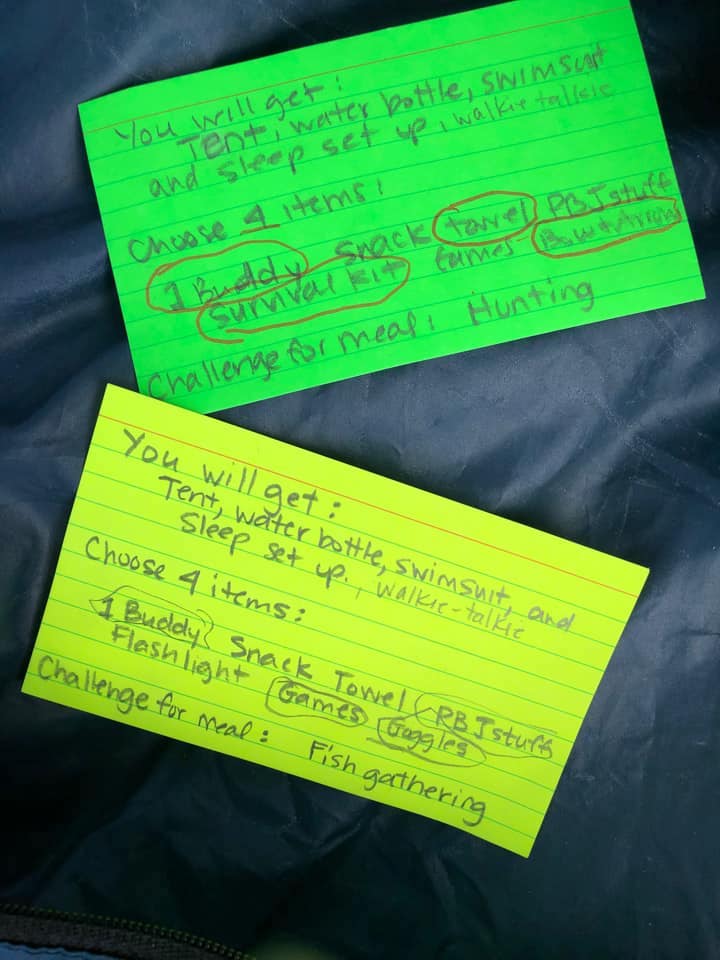 You will get:
Tent, water bottle, swimsuit
and sleep set up, walkie talkie
Choose 4 items:
1 Buddy Snack towel PBJ stuff
Survival Kit Games Bow & Arrow
Challenge for meal: Hunting
You will get:
Tent, water bottle, swimsuit, and
Sleep set up., walkie-talkie
Choose 4 items:
1 Buddy Snack Towel PBJ stuff
Flashlight Games Goggles
Challenge for meal: Fish gathering